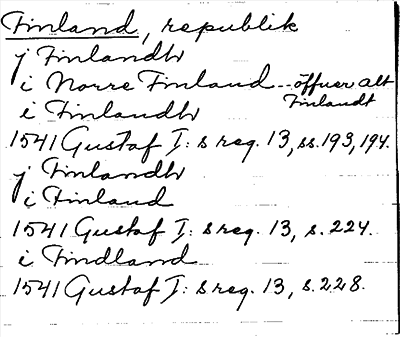 Finland, republik
j Finlandh
i Norre Finland -- öffuer alt Finlandt
i Finlandh
1541 Gustaf I: s reg. 13, ss. 193, 194.
j Finlandh
i Finland
1541 Gustaf I: s reg. 13, s. 224.
i Findland
1541 Gustaf I: s reg. 13, s. 228.